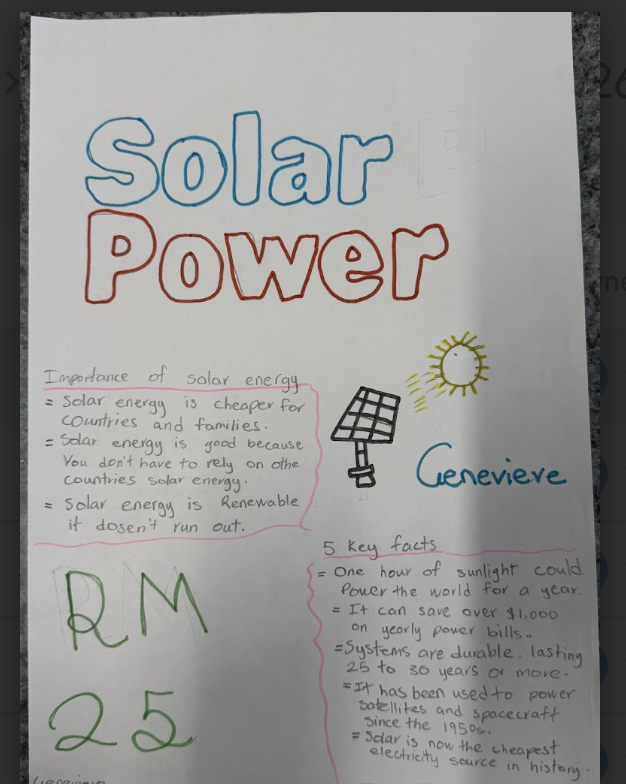 Solar P
Power
Importance of solar energy
= Solar energy is cheaper for
countries and families.
= Solar energy is good because
You don't have to rely on othe
countries solar energy.
= Solar energy is Renewable
it dosen't run out.
Genevieve
5 key facts
= One hour of sunlight could
Power the world for a year.
= It can save over $1,000
on yearly power bills.
= Systems are durable, lasting
25 to 30 years or more.
= It has been used to power
satellites and spacecraft
since the 1950s.
= Solar is now the cheapest
electricity source in history.
RM
25
Genevieve